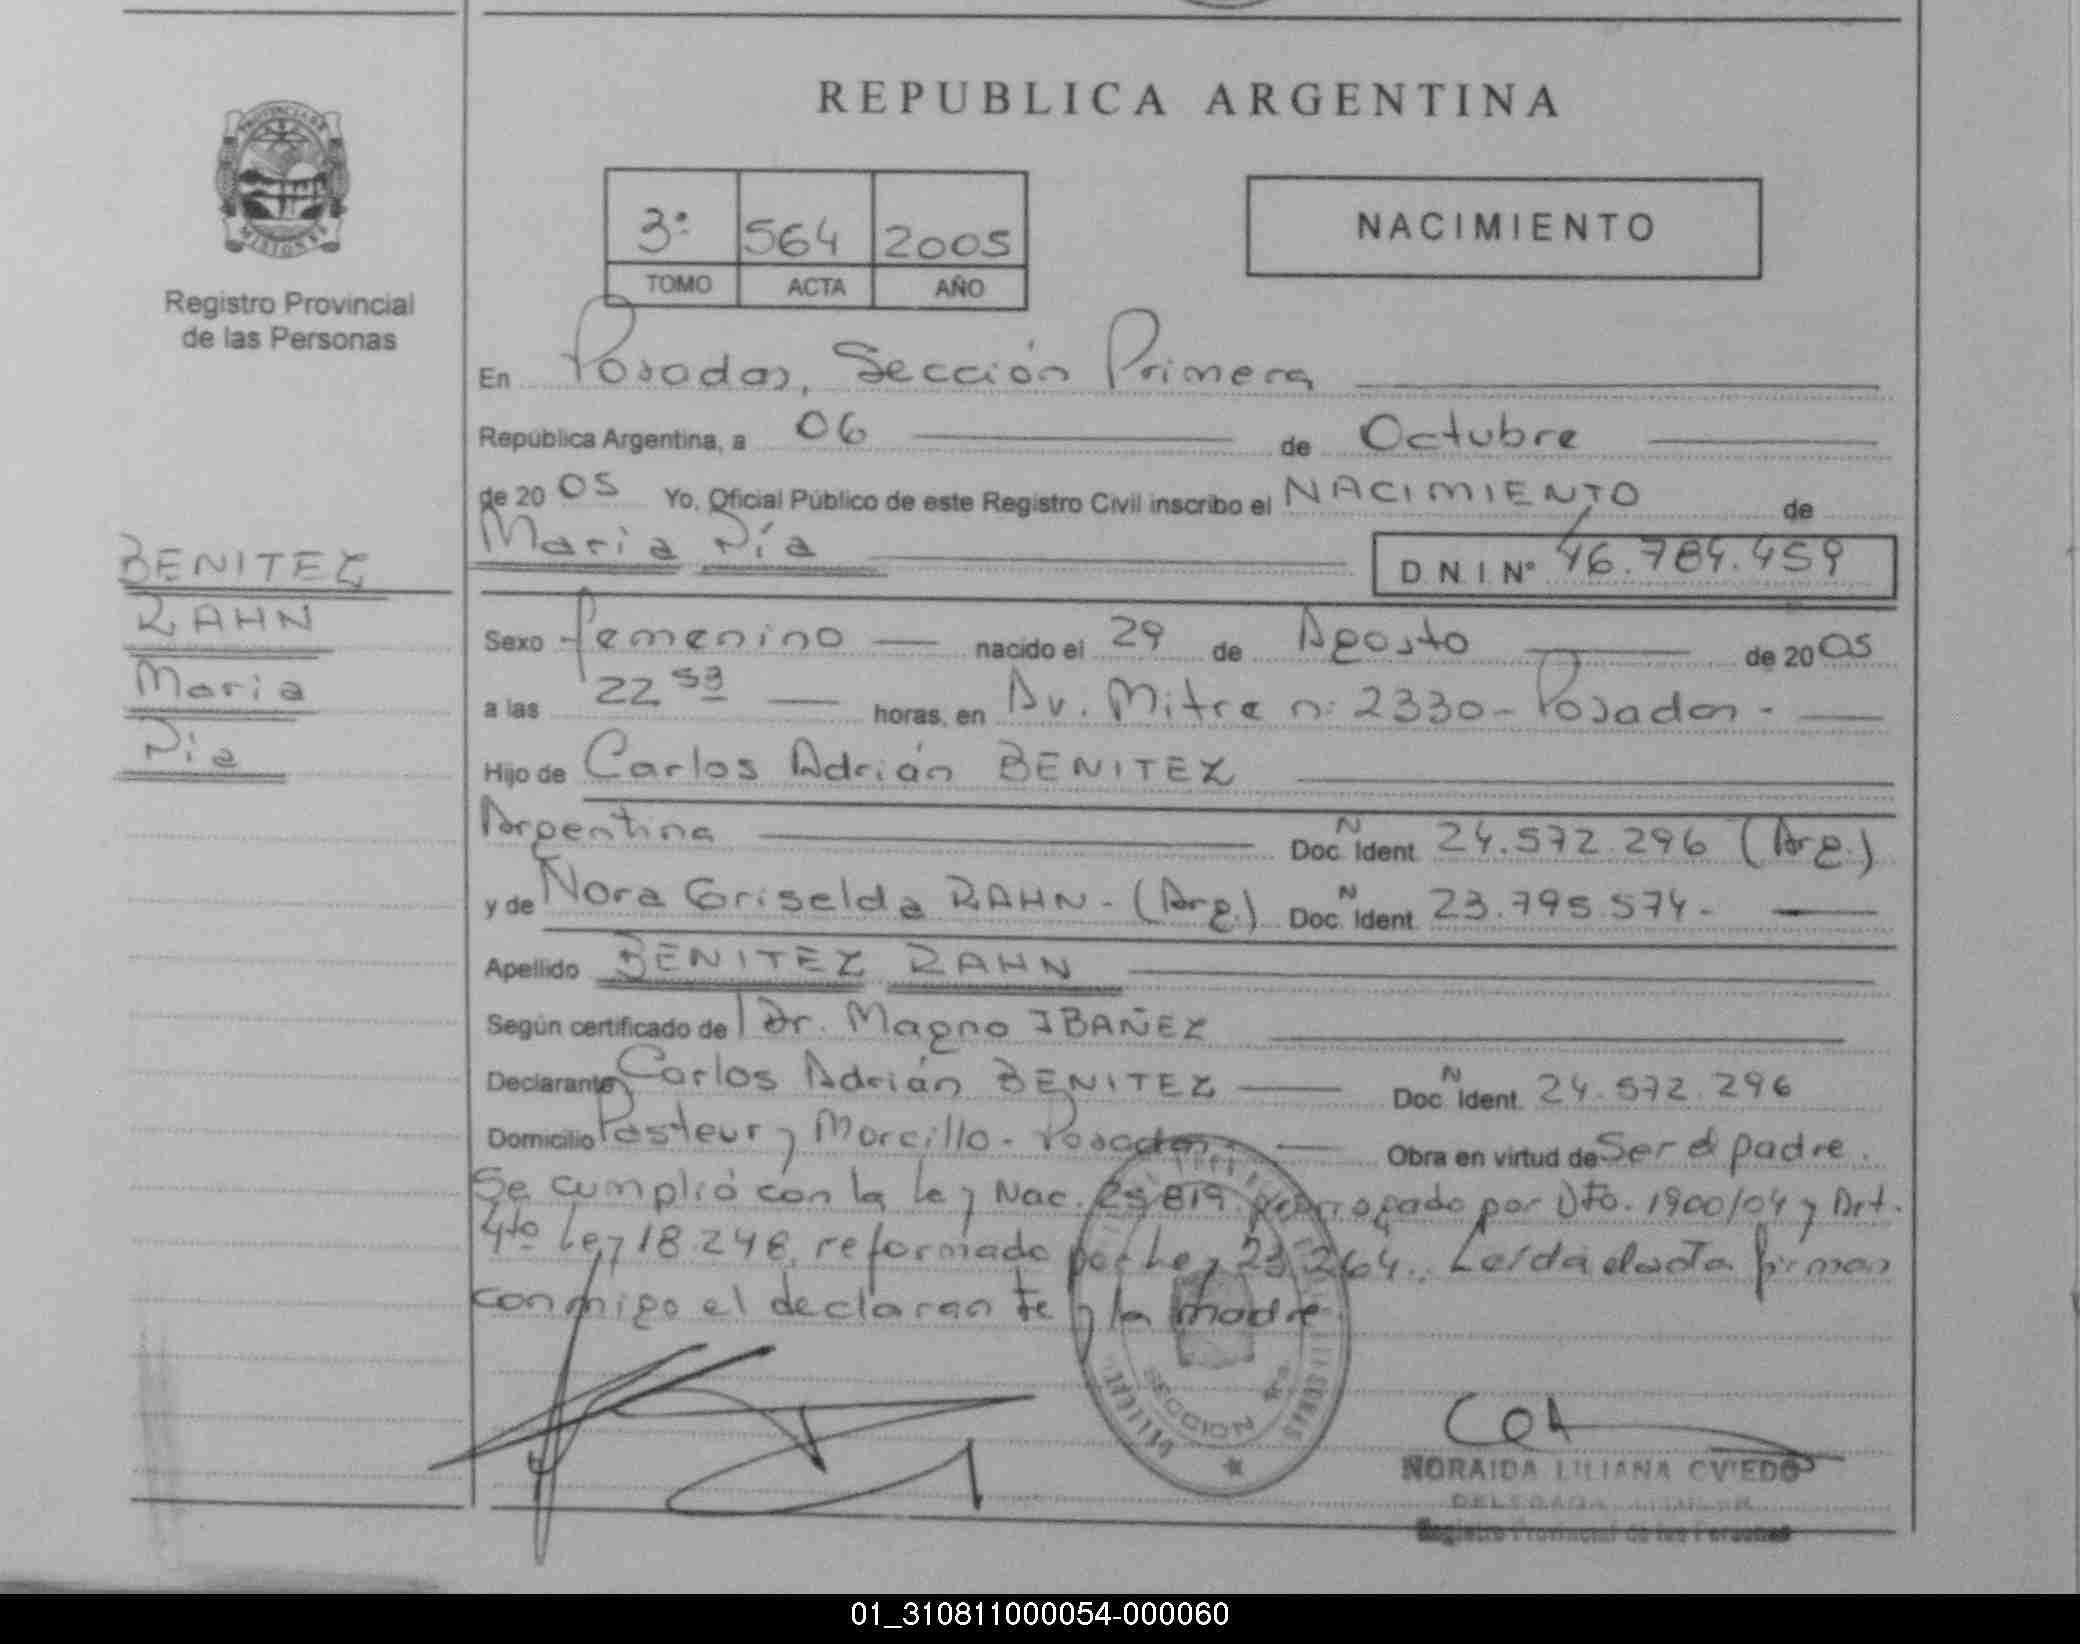 REPUBLICA ARGENTINA
PROVINCIA DE MISIONES
Registro Provincial
de las Personas
3º 564 2005
TOMO ACTA AÑO
NACIMIENTO
En Posadas, Sección Primera
República Argentina, a 06 de Octubre
de 2005 Yo, Oficial Público de este Registro Civil inscribo el NACIMIENTO de
Maria Pía D N I Nº 46.784.459
BENITEZ
RAHN
Maria
Pía
Sexo femenino nacido el 29 de Agosto de 2005
a las 22 53 horas, en Av. Mitre nº 2330 - Posadas -
Hijo de Carlos Adrián BENITEZ
Argentina Doc. N Ident. 24.572.296 (Arg.)
y de Nora Griselda RAHN - (Arg.) Doc. N Ident. 23.795.574 -
Apellido BENITEZ RAHN
Según certificado de Dr. Magno IBAÑEZ
Declarante Carlos Adrián BENITEZ Doc. N Ident. 24.572.296
Domicilio Pasteur y Morcillo - Posadas Obra en virtud de Ser el padre.
Se cumplió con la ley Nac. 25819 prorrogado por Dto. 1900/04 y Art.
4to Ley 18.248, reformado por Ley 23.264. Leída el acta firman
conmigo el declarante y la madre.
SECCION 1ra
NORAIDA LILIANA OVIEDO
DELEGADA TITULAR
Registro Provincial de las Personas
01_310811000054-000060